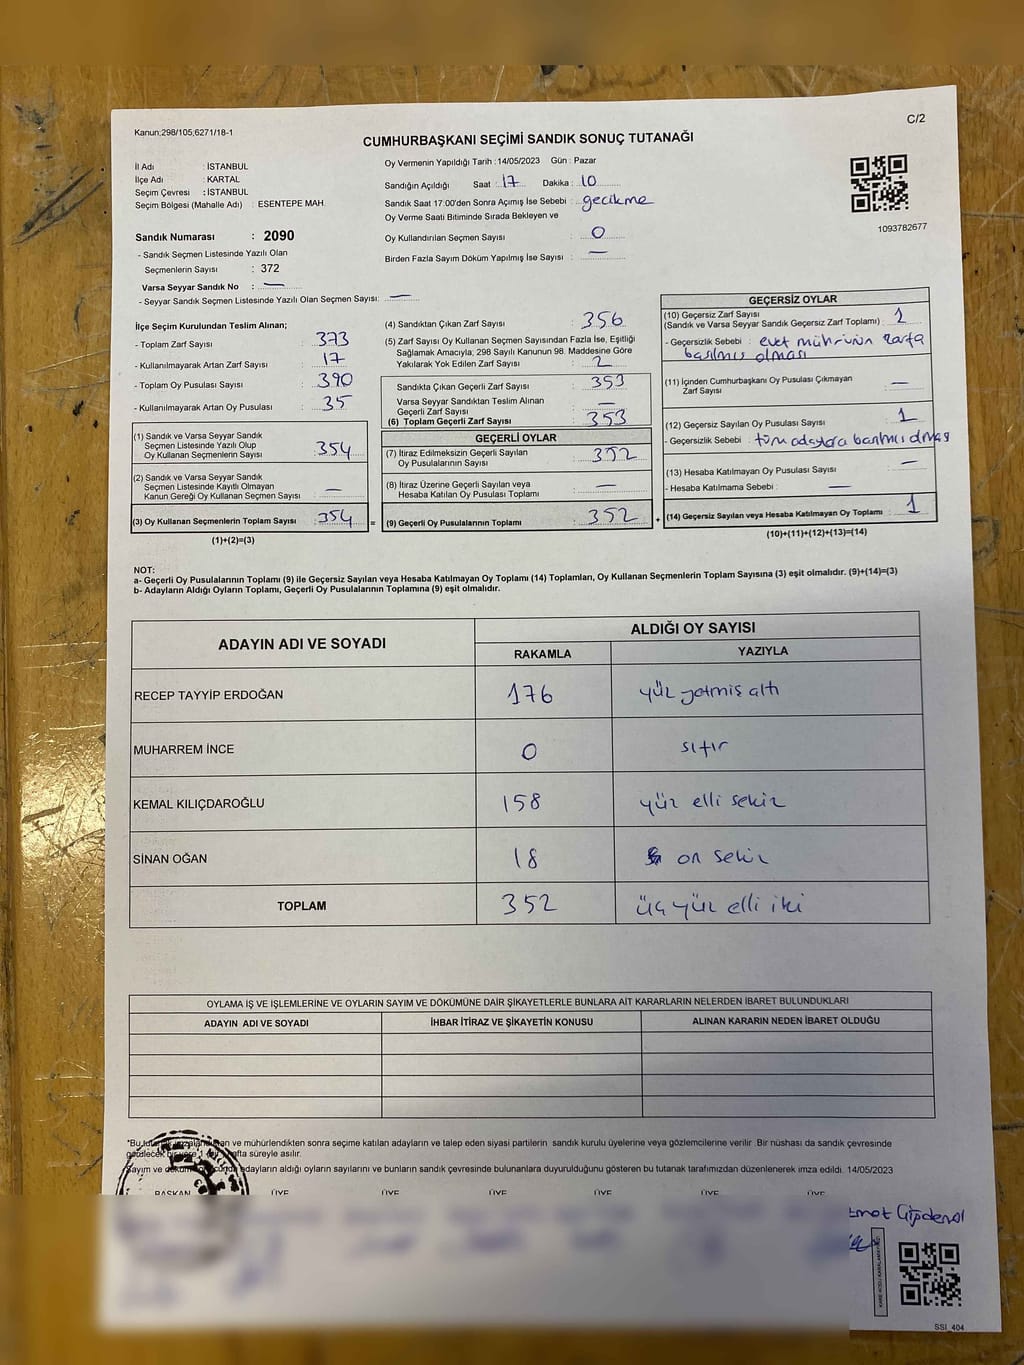 Kanun;298/105;6271/18-1
C/2
CUMHURBAŞKANI SEÇİMİ SANDIK SONUÇ TUTANAĞI
İl Adı : İSTANBUL
İlçe Adı : KARTAL
Seçim Çevresi : İSTANBUL
Seçim Bölgesi (Mahalle Adı) : ESENTEPE MAH.
Sandık Numarası : 2090
- Sandık Seçmen Listesinde Yazılı Olan
Seçmenlerin Sayısı : 372
Varsa Seyyar Sandık No : —
- Seyyar Sandık Seçmen Listesinde Yazılı Olan Seçmen Sayısı: —
Oy Vermenin Yapıldığı Tarih :14/05/2023 Gün : Pazar
Sandığın Açıldığı Saat : 17 Dakika : 10
Sandık Saat 17:00'den Sonra Açımış İse Sebebi : gecikme
Oy Verme Saati Bitiminde Sırada Bekleyen ve
Oy Kullandırılan Seçmen Sayısı : 0
Birden Fazla Sayım Döküm Yapılmış İse Sayısı : —
1093782677
İlçe Seçim Kurulundan Teslim Alınan;
- Toplam Zarf Sayısı : 373
- Kullanılmayarak Artan Zarf Sayısı : 17
- Toplam Oy Pusulası Sayısı : 390
- Kullanılmayarak Artan Oy Pusulası : 35
(1) Sandık ve Varsa Seyyar Sandık
Seçmen Listesinde Yazılı Olup
Oy Kullanan Seçmenlerin Sayısı : 354
(2) Sandık ve Varsa Seyyar Sandık
Seçmen Listesinde Kayıtlı Olmayan
Kanun Gereği Oy Kullanan Seçmen Sayısı : —
(3) Oy Kullanan Seçmenlerin Toplam Sayısı : 354 =
(1)+(2)=(3)
(4) Sandıktan Çıkan Zarf Sayısı : 356
(5) Zarf Sayısı Oy Kullanan Seçmen Sayısından Fazla İse, Eşitliği
Sağlamak Amacıyla; 298 Sayılı Kanunun 98. Maddesine Göre
Yakılarak Yok Edilen Zarf Sayısı : 2
Sandıkta Çıkan Geçerli Zarf Sayısı : 353
Varsa Seyyar Sandıktan Teslim Alınan
Geçerli Zarf Sayısı : —
(6) Toplam Geçerli Zarf Sayısı : 353
GEÇERLİ OYLAR
(7) İtiraz Edilmeksizin Geçerli Sayılan
Oy Pusulalarının Sayısı : 352
(8) İtiraz Üzerine Geçerli Sayılan veya
Hesaba Katılan Oy Pusulası Toplamı : —
(9) Geçerli Oy Pusulalarının Toplamı : 352 +
GEÇERSİZ OYLAR
(10) Geçersiz Zarf Sayısı
(Sandık ve Varsa Seyyar Sandık Geçersiz Zarf Toplamı) : 1
- Geçersizlik Sebebi : evet mührünün zarfa
basılmış olması
(11) İçinden Cumhurbaşkanı Oy Pusulası Çıkmayan
Zarf Sayısı : —
(12) Geçersiz Sayılan Oy Pusulası Sayısı : 1
- Geçersizlik Sebebi : tüm adaylara
(13) Hesaba Katılmayan Oy Pusulası Sayısı : —
- Hesaba Katılmama Sebebi : —
(14) Geçersiz Sayılan veya Hesaba Katılmayan Oy Toplamı : 1
(10)+(11)+(12)+(13)=(14)
NOT:
a- Geçerli Oy Pusulalarının Toplamı (9) ile Geçersiz Sayılan veya Hesaba Katılmayan Oy Toplamı (14) Toplamları, Oy Kullanan Seçmenlerin Toplam Sayısına (3) eşit olmalıdır. (9)+(14)=(3)
b- Adayların Aldığı Oyların Toplamı, Geçerli Oy Pusulalarının Toplamına (9) eşit olmalıdır.
ADAYIN ADI VE SOYADI ALDIĞI OY SAYISI
RAKAMLA YAZIYLA
RECEP TAYYİP ERDOĞAN 176 yüz yetmiş altı
MUHARREM İNCE 0 sıfır
KEMAL KILIÇDAROĞLU 158 yüz elli sekiz
SİNAN OĞAN 18 on sekiz
TOPLAM 352 üç yüz elli iki
OYLAMA İŞ VE İŞLEMLERİNE VE OYLARIN SAYIM VE DÖKÜMÜNE DAİR ŞİKAYETLERLE BUNLARA AİT KARARLARIN NELERDEN İBARET BULUNDUKLARI
ADAYIN ADI VE SOYADI İHBAR İTİRAZ VE ŞİKAYETİN KONUSU ALINAN KARARIN NEDEN İBARET OLDUĞU
ve mühürlendikten sonra seçime katılan adayların ve talep eden siyasi partilerin sandık kurulu üyelerine veya gözlemcilerine verilir .Bir nüshası da sandık çevresinde
süreyle asılır.
Sayım ve adayların aldığı oyların sayılarını ve bunların sandık çevresinde bulunanlara duyurulduğunu gösteren bu tutanak tarafımızdan düzenlenerek imza edildi. 14/05/2023
BAŞKAN ÜYE ÜYE ÜYE ÜYE ÜYE ÜYE
SSI_404